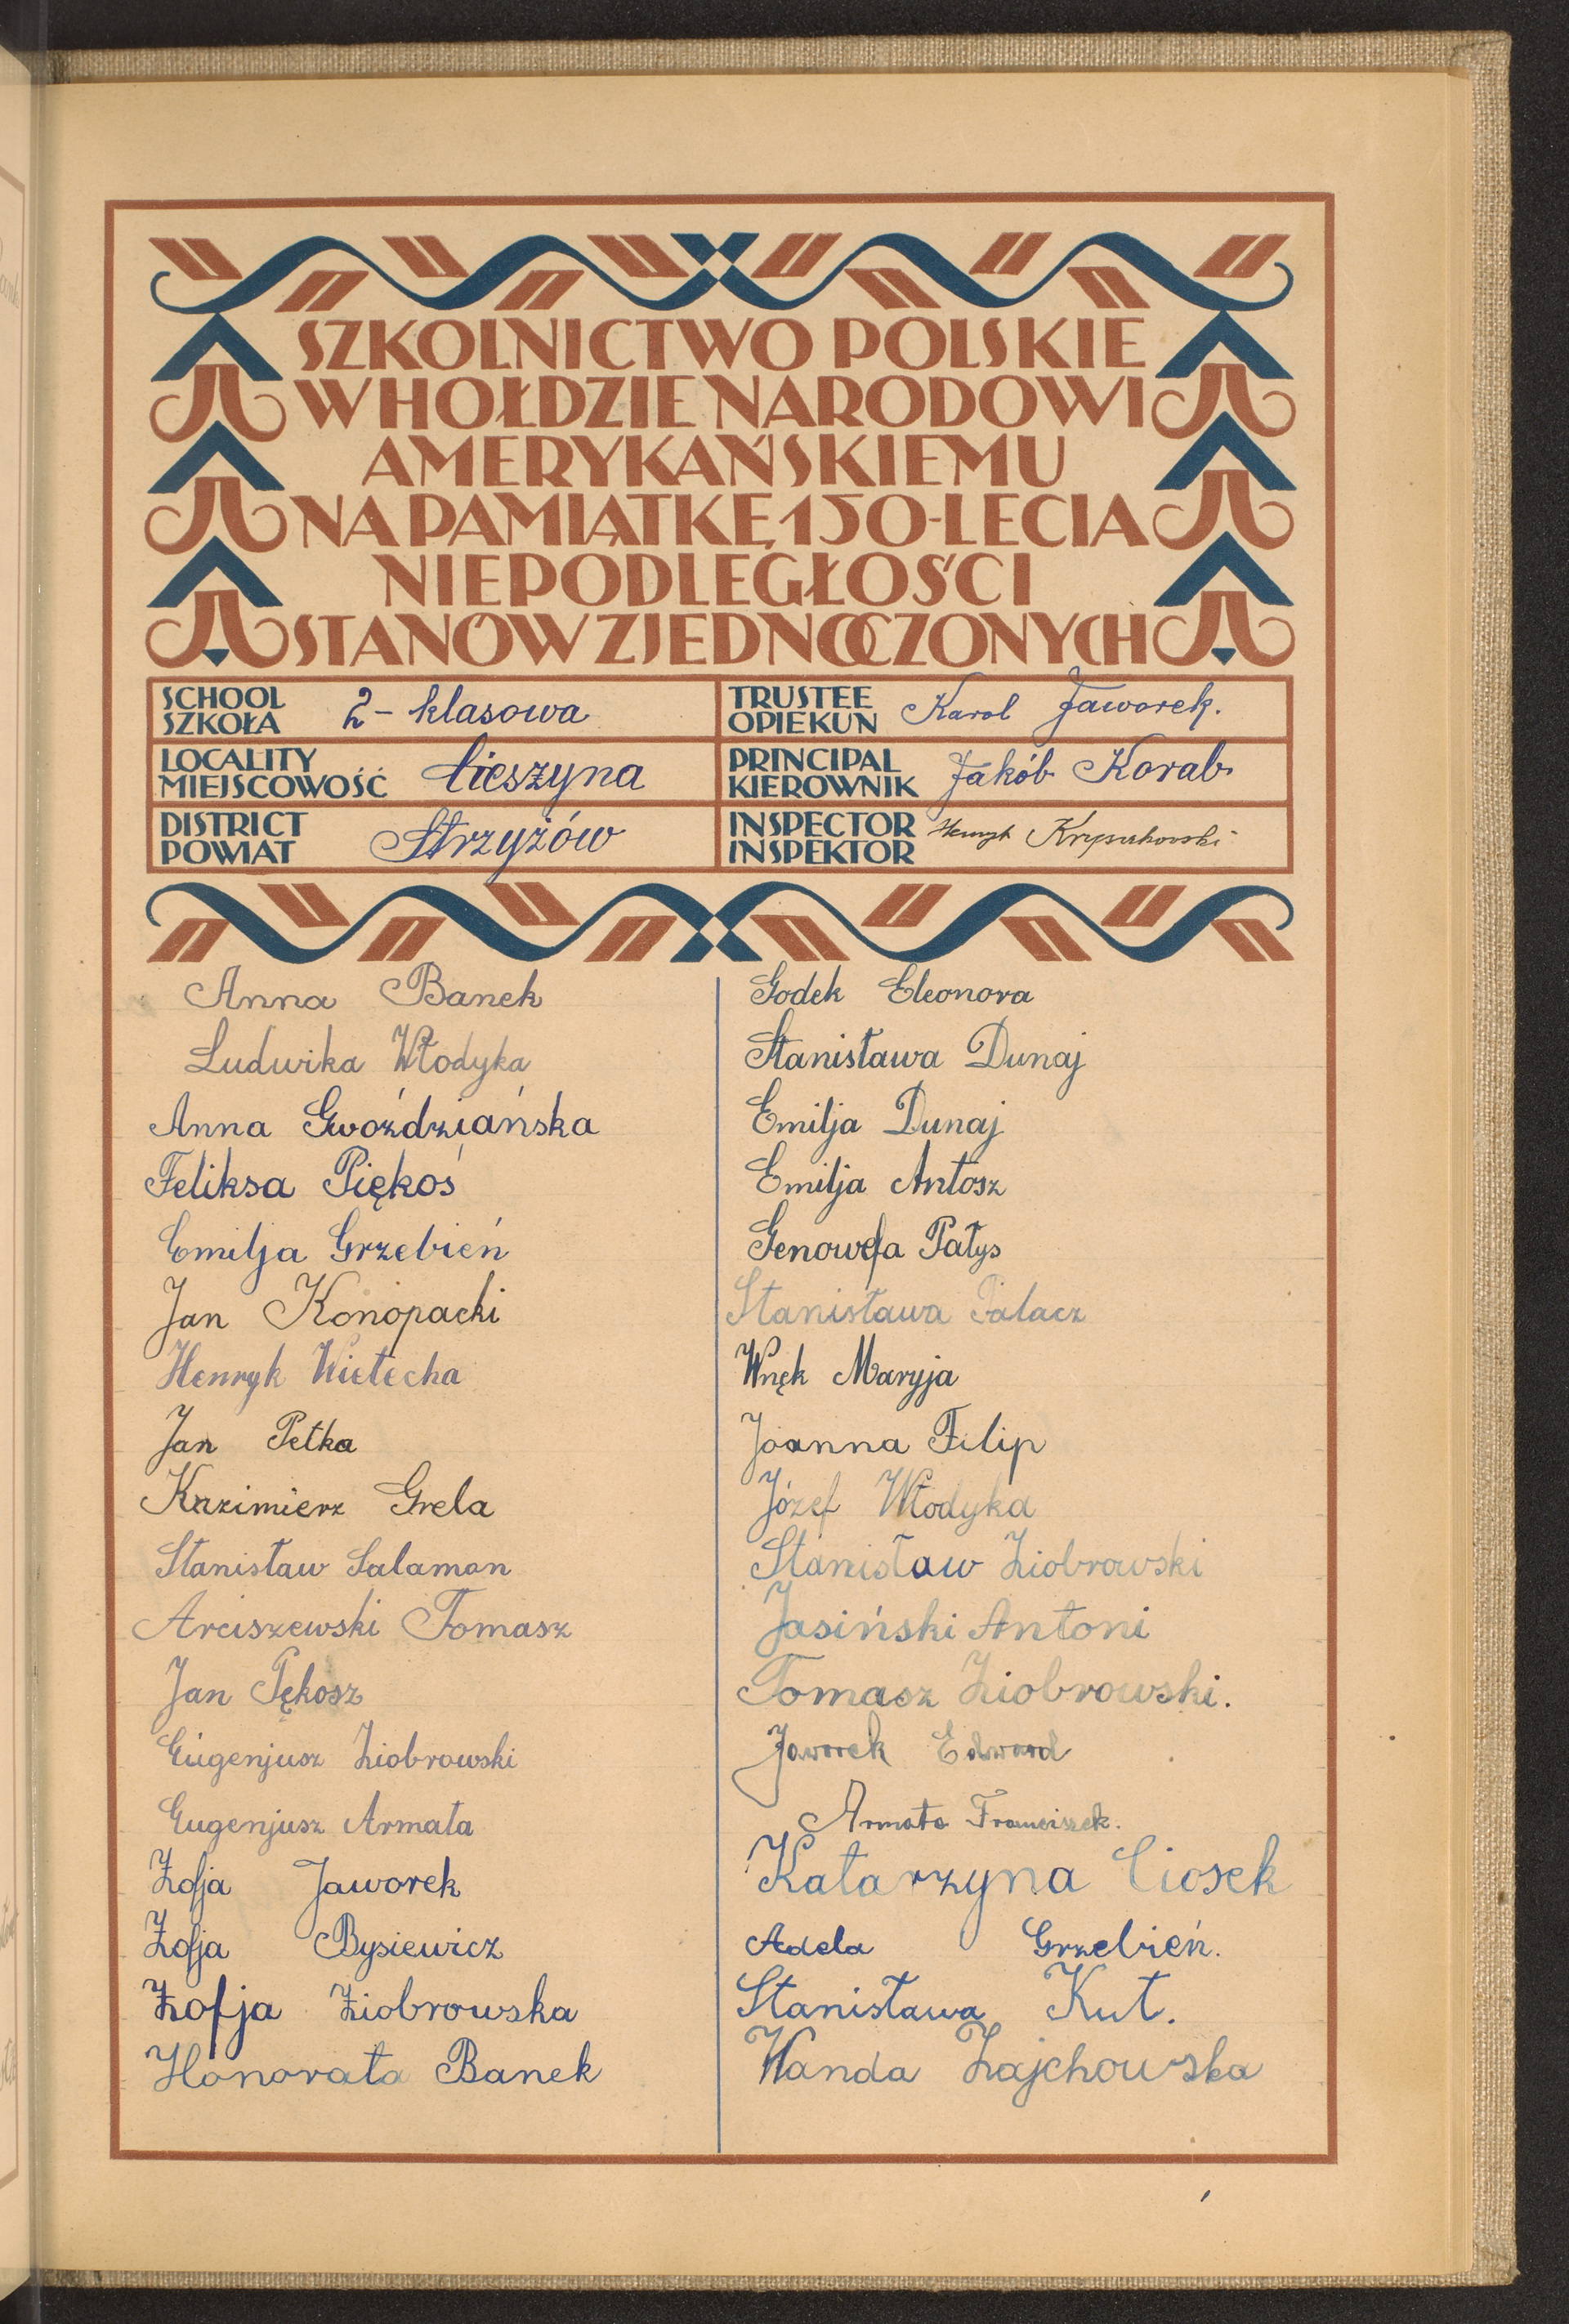 SZKOLNICTWO POLSKIE
W HOŁDZIE NARODOWI
AMERYKAŃSKIEMU
NA PAMIĄTKĘ 150-LECIA
NIEPODLEGŁOŚCI
STANÓW ZJEDNOCZONYCH
SCHOOL
SZKOŁA 2-klasowa
TRUSTEE
OPIEKUN Karol Jaworek.
LOCALITY
MIEJSCOWOŚĆ Cieszyna
PRINCIPAL
KIEROWNIK Jakób Korab
DISTRICT
POWIAT Strzyżów
INSPECTOR
INSPEKTOR Henryk
Anna Banek
Ludwika Włodyka
Anna Gwoździańska
Feliksa Piękoś
Emilja Grzebień
Jan Konopacki
Henryk Wietecha
Jan Petka
Kazimierz Grela
Stanisław Salamon
Arciszewski Tomasz
Jan Pękosz
Eugenjusz Ziobrowski
Eugenjusz Armata
Zofja Jaworek
Zofja Bysiewicz
Zofja Ziobrowska
Honorata Banek
Godek Eleonora
Stanisława Dunaj
Emilja Dunaj
Emilja Antosz
Genowefa Pałys
Stanisława Palacz
Wnęk Maryja
Joanna Filip
Józef Włodyka
Stanisław Ziobrowski
Jasiński Antoni
Tomasz Ziobrowski.
Jaworek Edward
Armata Franciszek.
Katarzyna Ciosek
Adela Grzebień.
Stanisława Kut.
Wanda Zajchowska